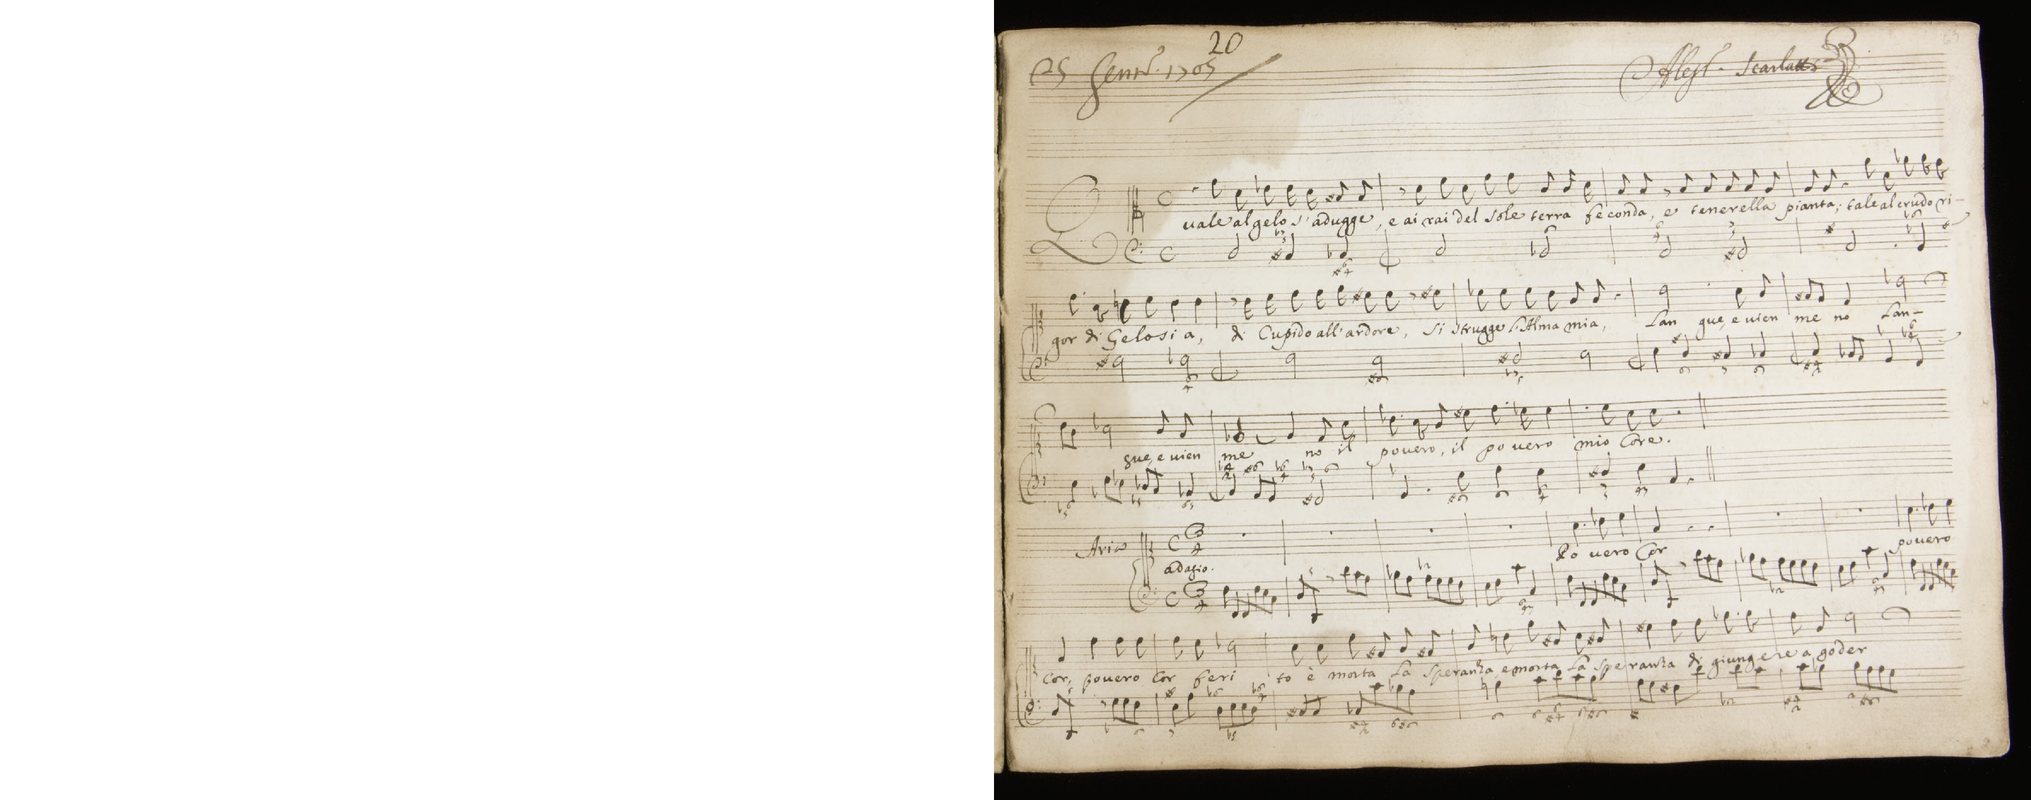 20
25 Genn.º 1705
Aless. Scarlatti
Quale al gelo s'adugge, e ai rai del sole terra feconda, e tenerella pianta; tale al crudo ri-
gor di Gelosia, di Cupido all'ardore, si strugge l'Alma mia, Lan gue, e vien me no Lan-
gue, e vien me no il povero, il povero mio Core.
Aria
adagio.
Povero Cor povero
Cor, povero Cor feri to è morta la speranza e morta la speranza di giungere a goder